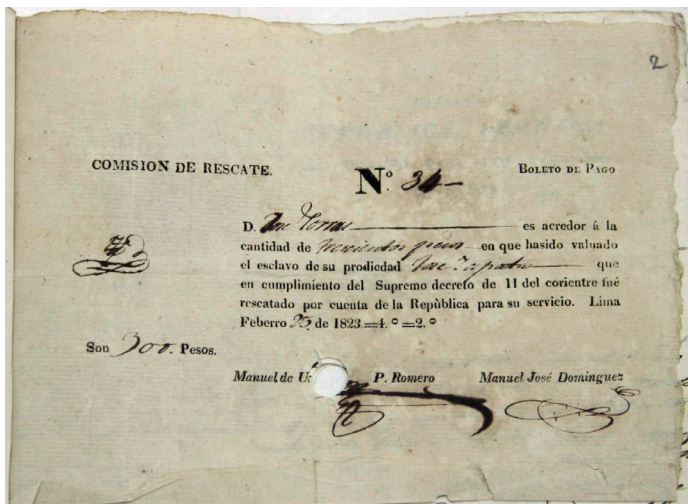 2
COMISION DE RESCATE.
Nº 34
BOLETO DE PAGO
D. Jose Torres es acredor á la
cantidad de trescientos pesos en que hasido valuado
el esclavo de su prodiedad Jose Zapata que
en cumplimiento del Supremo decreto de 11 del coriente fué
rescatado por cuenta de la Repùblica para su servicio. Lima
Feberro 25 de 1823.=4.º=2.º
Son 300. Pesos.
Manuel de P. Romero Manuel José Dominguez